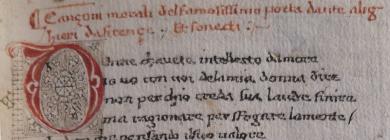 Cançoni morali del famosissimo poeta dante alig
hieri da firençe ; & sonecti :~
Donne ch aueto intellecto damore
io uo con uoi dela mia donna dire
non perchio creda sua laude finire
ma ragionare per sfogare lamente /